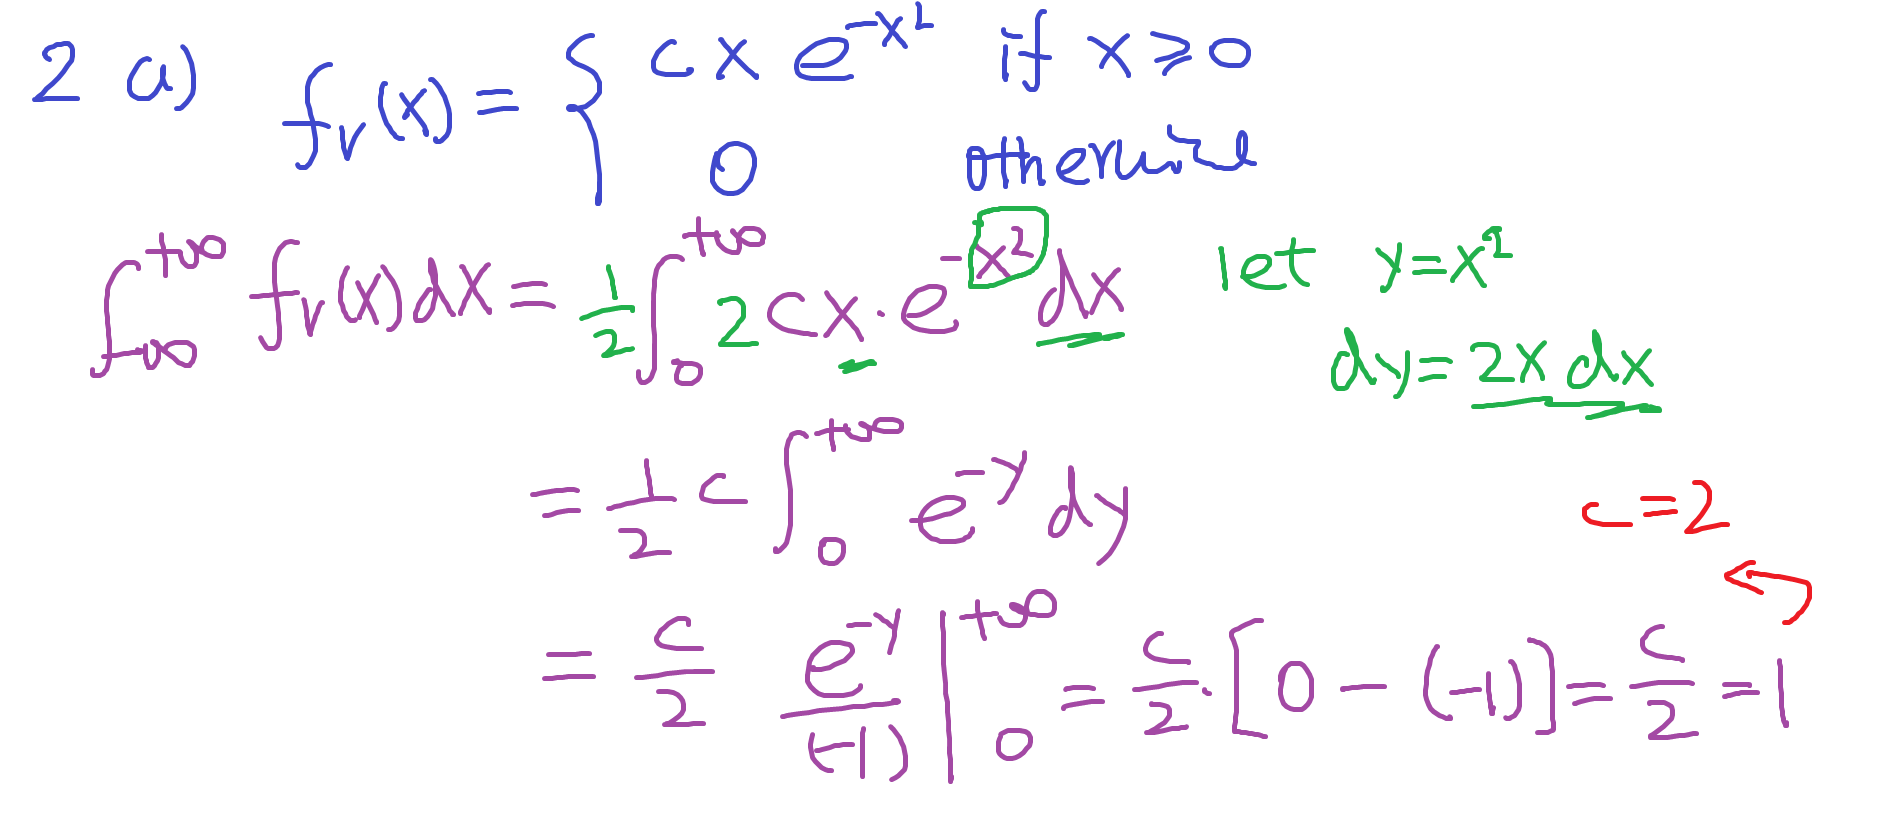 2 a) f_V(x) = { c x e^{-x^2} if x ⩾ 0
0 otherwise
∫_{-∞}^{+∞} f_V(x) dx = 1/2 ∫_0^{+∞} 2 c x · e^{-x^2} dx let y = x^2
dy = 2x dx
= 1/2 c ∫_0^{+∞} e^{-y} dy
c = 2
= c/2 e^{-y}/(-1) |_0^{+∞} = c/2 · [0 - (-1)] = c/2 = 1